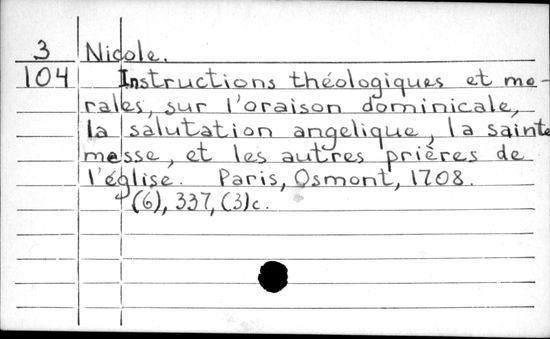 3 Nicole.
104 Instructions théologiques et mo-
rales, sur l'oraison dominicale,
la salutation angelique, la sainte
messe, et les autres prières de
l'église. Paris, Osmont, 1708.
(6), 337, (3)c.